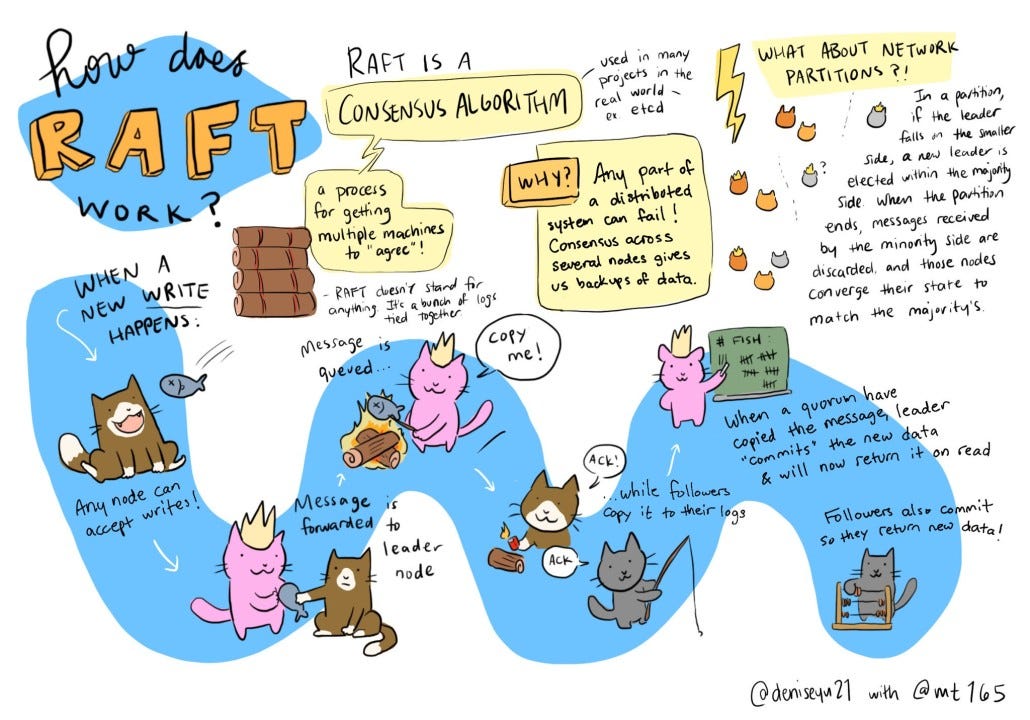 how does
RAFT
WORK?
RAFT IS A
CONSENSUS ALGORITHM
used in many
projects in the
real world -
ex etcd
a process
for getting
multiple machines
to "agree"!
- RAFT doesn't stand for
anything. It's a bunch of logs
tied together.
WHY? Any part of
a distributed
system can fail!
Consensus across
several nodes gives
us backups of data.
WHAT ABOUT NETWORK
PARTITIONS?!
In a partition,
if the leader
falls on the smaller
side, a new leader is
elected within the majority
side. When the partition
ends, messages received
by the minority side are
discarded, and those nodes
converge their state to
match the majority's.
?
WHEN A
NEW WRITE
HAPPENS:
Any node can
accept writes!
Message is
forwarded to
leader
node
Message is
queued...
COPY
ME!
ACK!
ACK
...while followers
copy it to their logs
# FISH:
When a quorum have
copied the message, leader
"commits" the new data
& will now return it on read
Followers also commit
so they return new data!
@deniseyu21 with @mt165